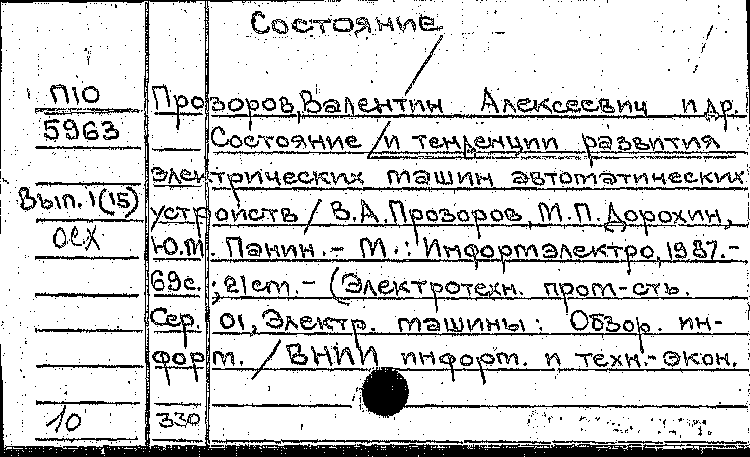 Состояние
П10 Прозоров, Валентин Алексеевич и др.
5963 Состояние и тенденции развития
электрических машин автоматических
Вып. 1(15) устройств / В.А. Прозоров, М.П. Дорохин,
осх Ю.М. Панин. - М.: Информэлектро, 1987. -
69с.; 21 cm. - (Электротехн. пром-сть.
Сер. 01, Электр. машины: Обзор. ин-
форм. / ВНИИ информ. и техн.-экон.
10 330